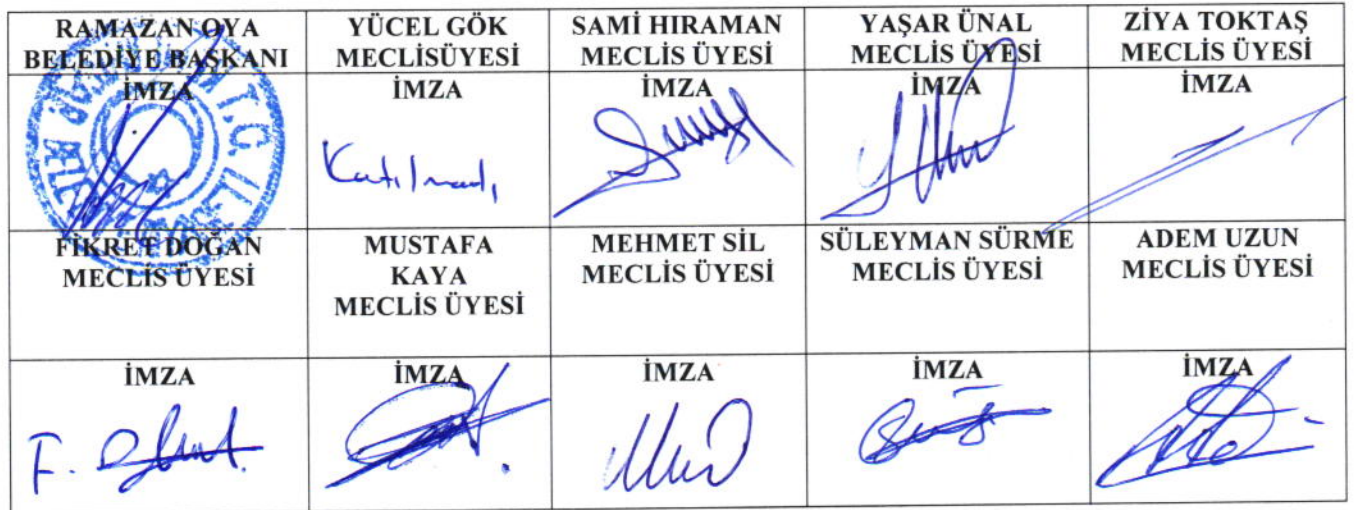 RAMAZAN OYA
BELEDİYE BAŞKANI
YÜCEL GÖK
MECLİSÜYESİ
SAMİ HIRAMAN
MECLİS ÜYESİ
YAŞAR ÜNAL
MECLİS ÜYESİ
ZİYA TOKTAŞ
MECLİS ÜYESİ
İMZA
İMZA
Katılmadı
İMZA
İMZA
İMZA
FİKRET DOĞAN
MECLİS ÜYESİ
MUSTAFA
KAYA
MECLİS ÜYESİ
MEHMET SİL
MECLİS ÜYESİ
SÜLEYMAN SÜRME
MECLİS ÜYESİ
ADEM UZUN
MECLİS ÜYESİ
İMZA
İMZA
İMZA
İMZA
İMZA